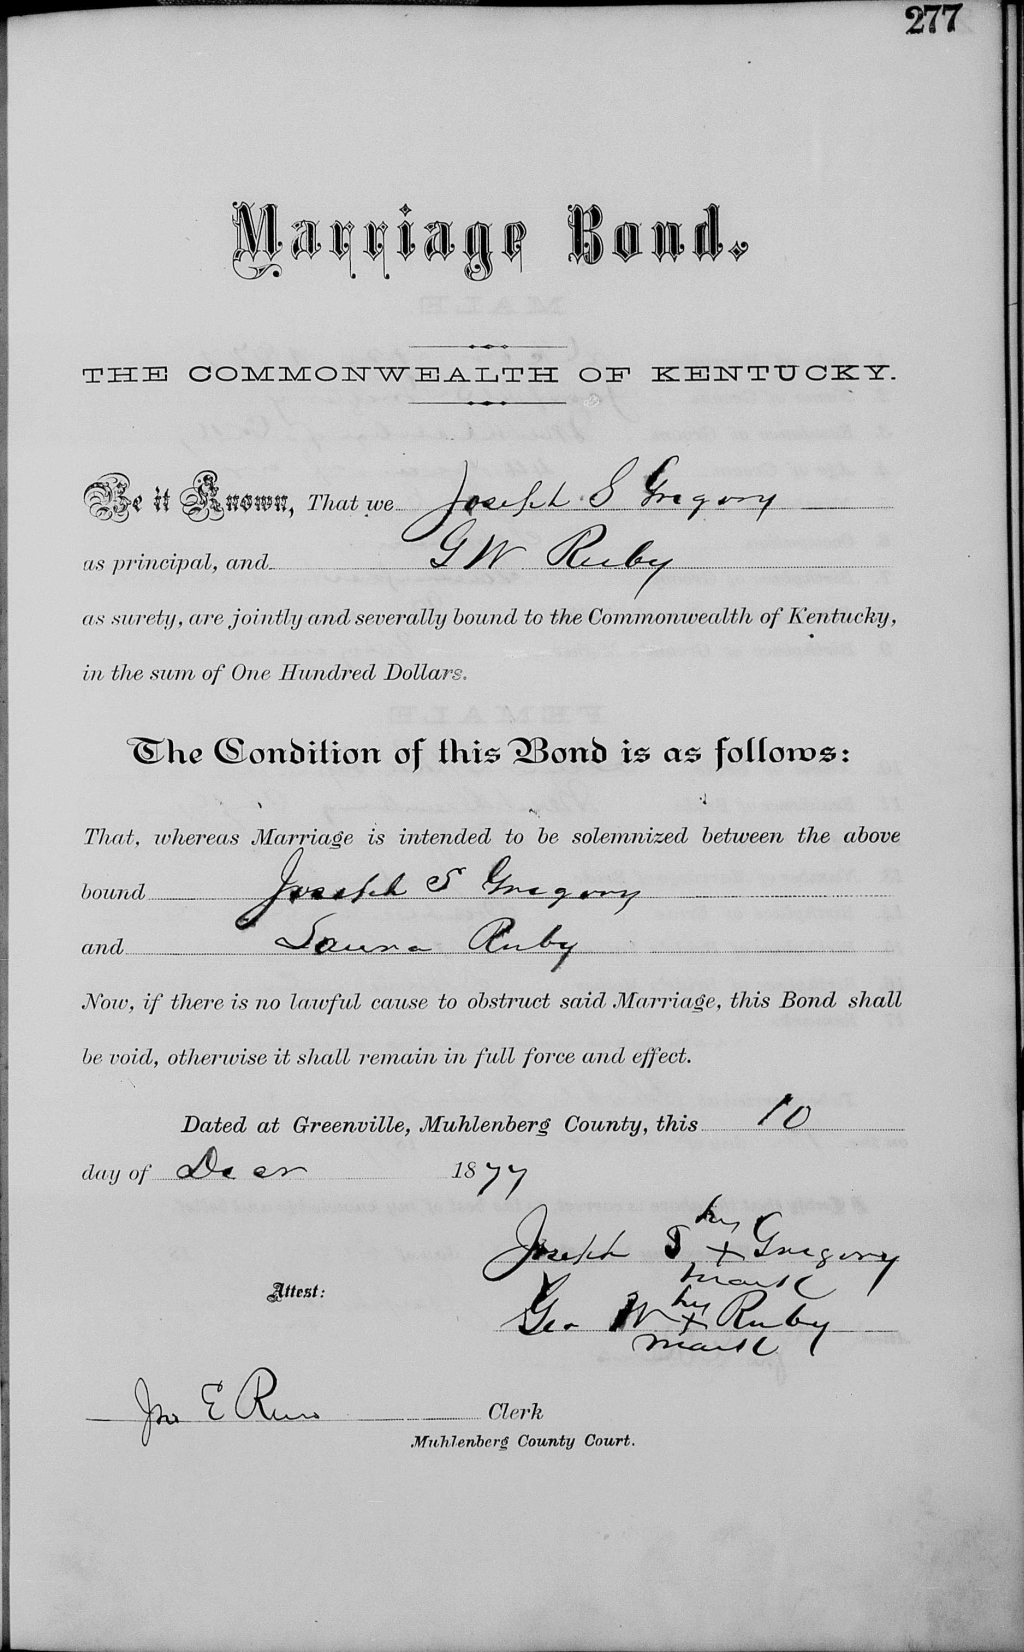 277
Marriage Bond.
THE COMMONWEALTH OF KENTUCKY.
Be it Known, That we Joseph S Gregory
as principal, and G W Ruby
as surety, are jointly and severally bound to the Commonwealth of Kentucky,
in the sum of One Hundred Dollars.
The Condition of this Bond is as follows:
That, whereas Marriage is intended to be solemnized between the above
bound Joseph S Gregory
and Laura Ruby
Now, if there is no lawful cause to obstruct said Marriage, this Bond shall
be void, otherwise it shall remain in full force and effect.
Dated at Greenville, Muhlenberg County, this 10
day of Decr 1877
his
Joseph S x Gregory
mark
Attest:
his
Geo W x Ruby
mark
Jno E Reno Clerk
Muhlenberg County Court.